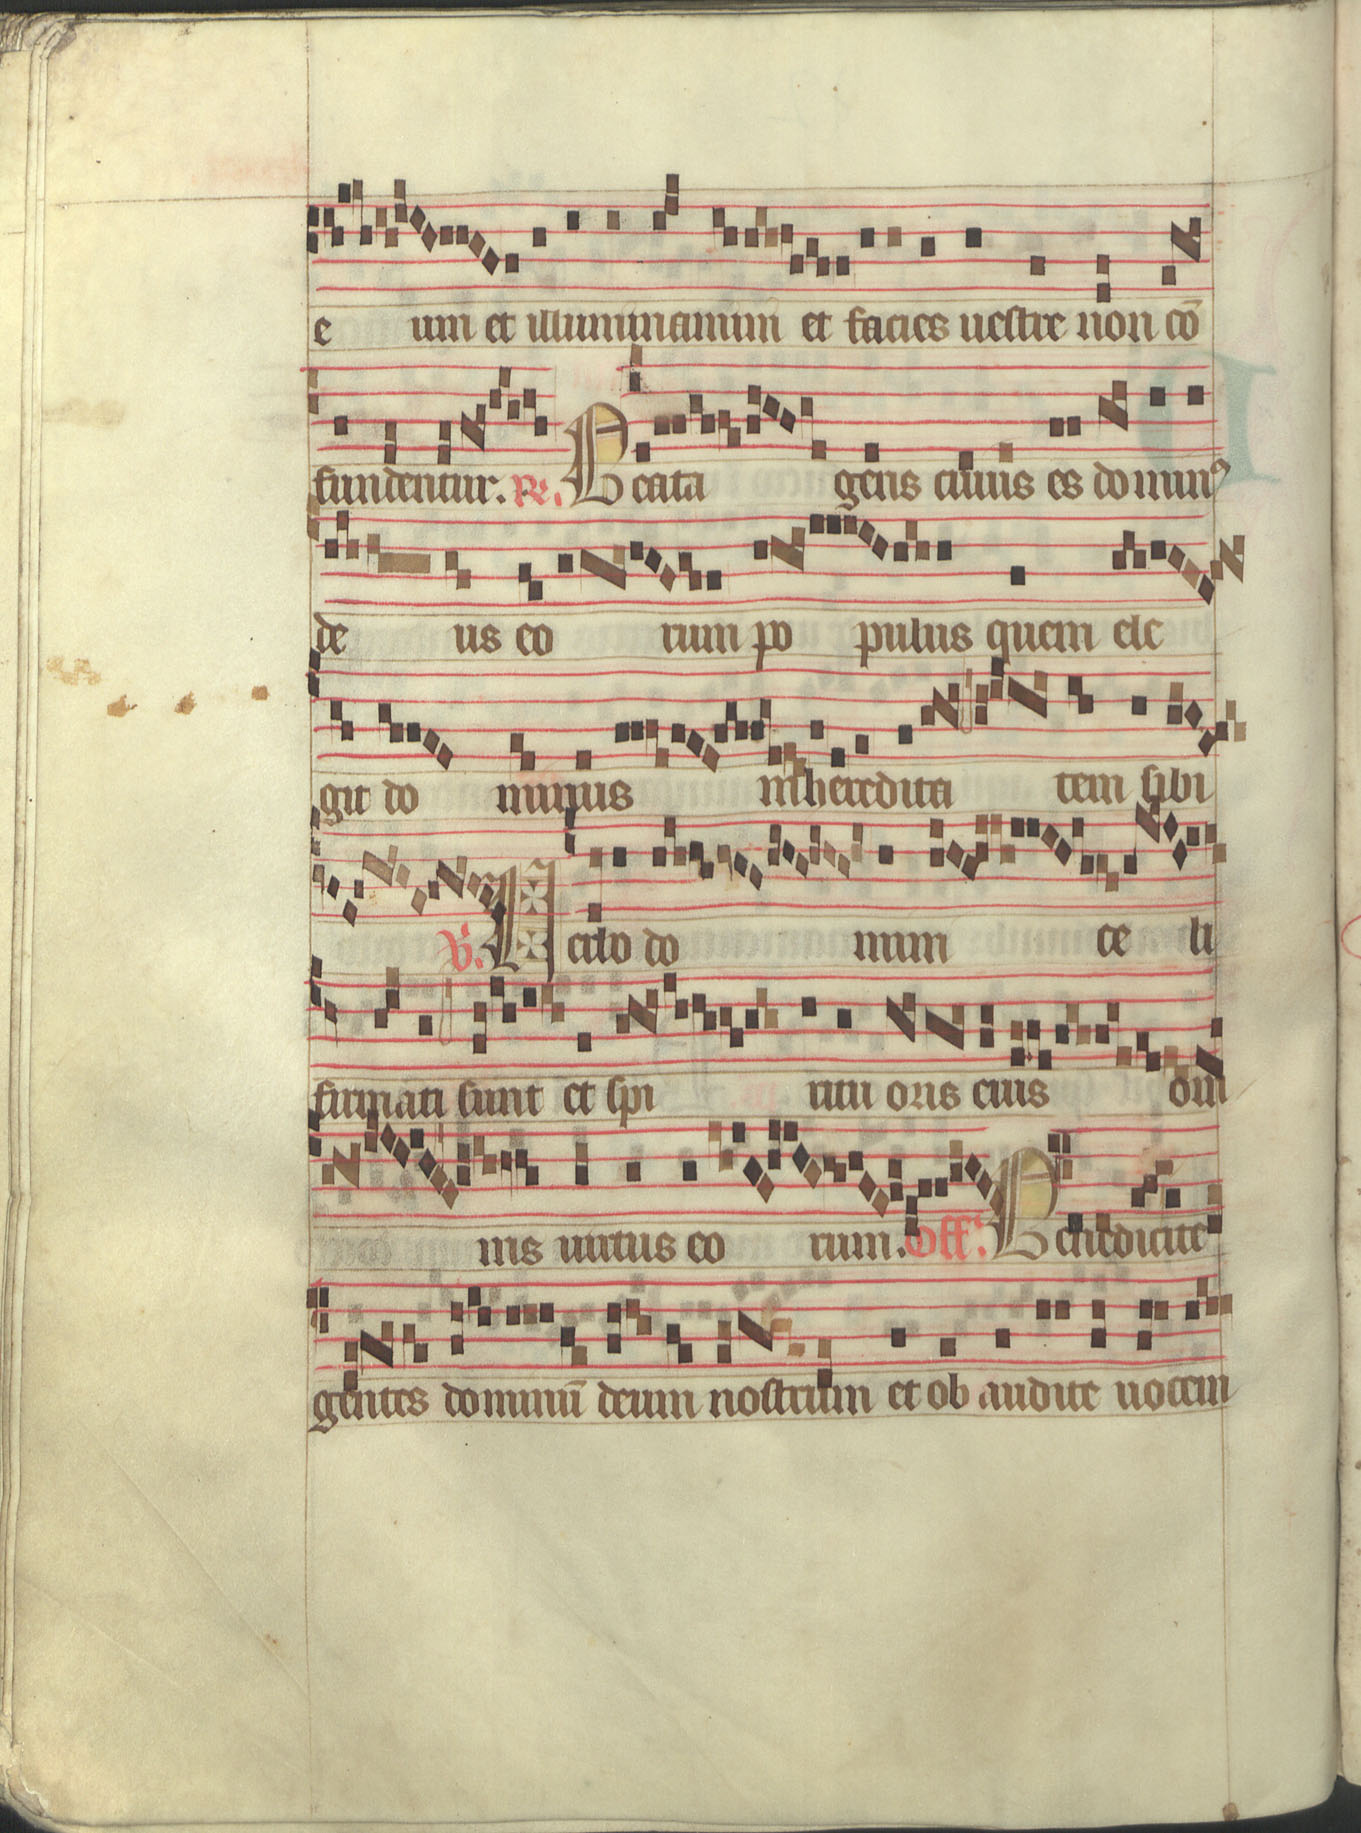 e um et illuminamini et facies uestre non cō
fundentur. R. Beata gens cuius es dominꝰ
de us eo rum po pulus quem ele
git do minus in heredita tem sibi
V. Uerbo do mini ce li
firmati sunt et spi ritu oris eius om
nis uirtus eo rum. Off. Benedicite
gentes dominū deum nostrum et ob audite uocem